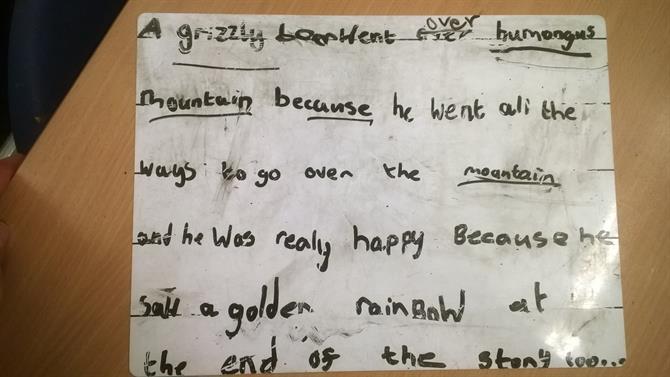 A grizzly bear went over humongus
mountain because he went all the
ways to go over the mountain
and he was realy happy Because he
saw a golden rainBow at
the end of the story too...